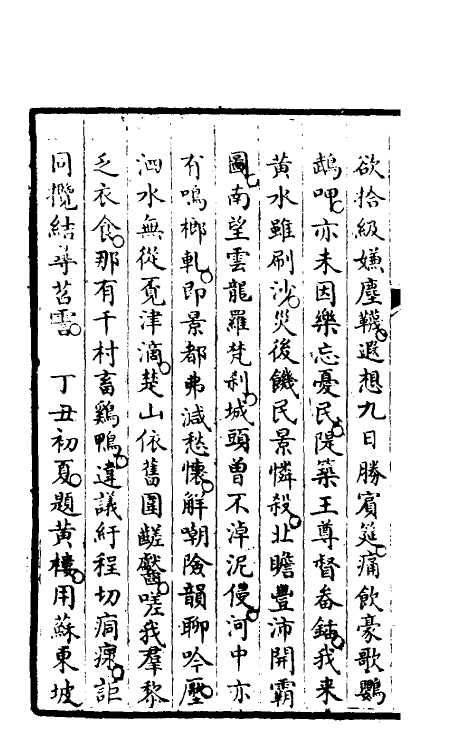 欲拾級嫌塵韈遐想九日勝賓筵痛飲豪歌鸚
鵡呷亦未因樂忘憂民隄築王尊督畚鍤我来
黃水雖刷沙災後饑民景憐殺北瞻豐沛開霸
圖南望雲龍羅梵刹城頭曾不淖泥侵河中亦
有鳴榔軋即景都弗減愁懷解嘲險韻聊吟壓
泗水無從覔津滴楚山依舊圍齾嗟我羣黎
乏衣食那有千村畜鷄鴨違議紆程切痌瘝詎
同攬結尋苕霅　丁丑初夏題黃樓用蘇東坡